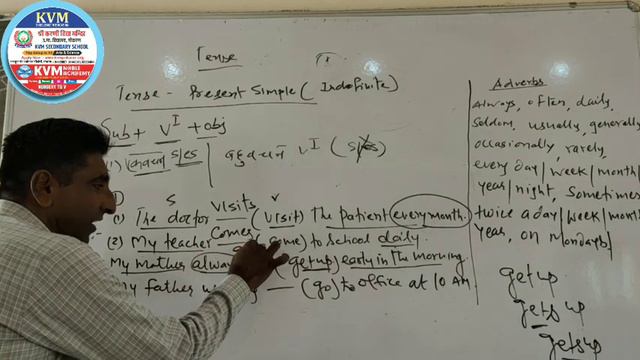 KVM
श्री करणी विद्या मन्दिर
KVM SECONDARY SCHOOL
KVM NOBLE ACADEMY
NURSERY TO V
Tense
Tense - Present Simple ( Indefinite)
Sub + V I + obj
1) एकवचन s/es बहुवचन V I ( s/es )
S V
(1) The doctor visits (visit) The patient every month.
(2) My teacher comes (come) to school daily.
My Mother always (get up) early in the morning.
My father (go) to office at 10 AM.
Adverbs
Always, often, daily,
Seldom, usually, generally
occasionally, rarely,
every day/week/month/
year/night, Sometimes
twice a day/week/month
year, on Mondays
get up
gets up
gets up